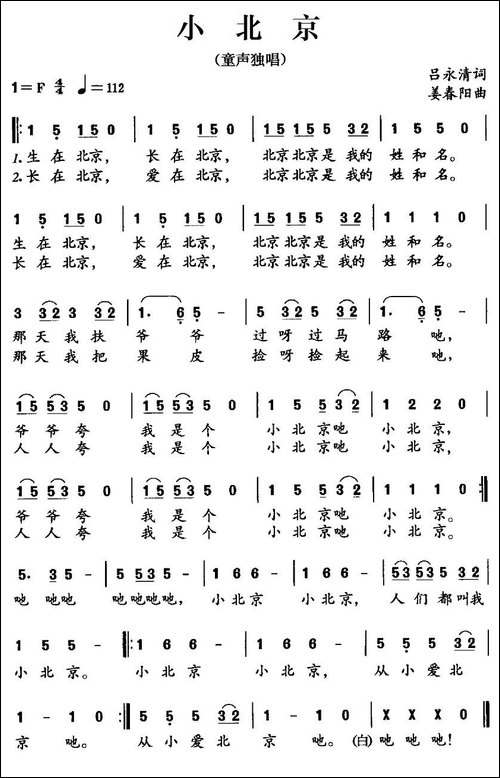 小北京
(童声独唱)
1=F 4/4 ♩=112
吕永清词
姜春阳曲
1 5 150 | 1 5 150 | 15 15 5 32 | 1 5 5 0 |
1.生在北京, 长在北京, 北京北京是我的 姓和名。
2.长在北京, 爱在北京, 北京北京是我的 姓和名。
1 5 150 | 1 5 150 | 15 15 5 32 | 1 1 1 0 |
生在北京, 长在北京, 北京北京是我的 姓和名。
长在北京, 爱在北京, 北京北京是我的 姓和名。
3 32 32 3 | 1. 6 5 - | 5 32 32 5 | 1. 6 5 - |
那天我扶 爷爷 过呀过马 路吔,
那天我把 果皮 捡呀捡起 来吔,
15 53 5 0 | 15 53 5 0 | 1 5 53 2 | 1 2 2 0 |
爷爷夸 我是个 小北京吔 小北京,
人人夸 我是个 小北京吔 小北京,
15 53 5 0 | 15 53 5 0 | 1 5 53 2 | 1 1 1 0 :|
爷爷夸 我是个 小北京吔 小北京。
人人夸 我是个 小北京吔 小北京。
5. 35 - | 55 53 5 - | 1 66 - | 1 66 - | 53 53 5 32 |
吔吔吔 吔吔吔吔, 小北京 小北京, 人们都叫我
1 5 5 - |: 1 66 - | 1 66 - | 5 5 5 32 |
小北京。 小北京 小北京, 从小爱北
1 - 1 0 :| 5 5 5 32 | 1 - 1 0 | X X X 0 ‖
京吔。 从小爱北 京吔。 (白)吔吔吔!